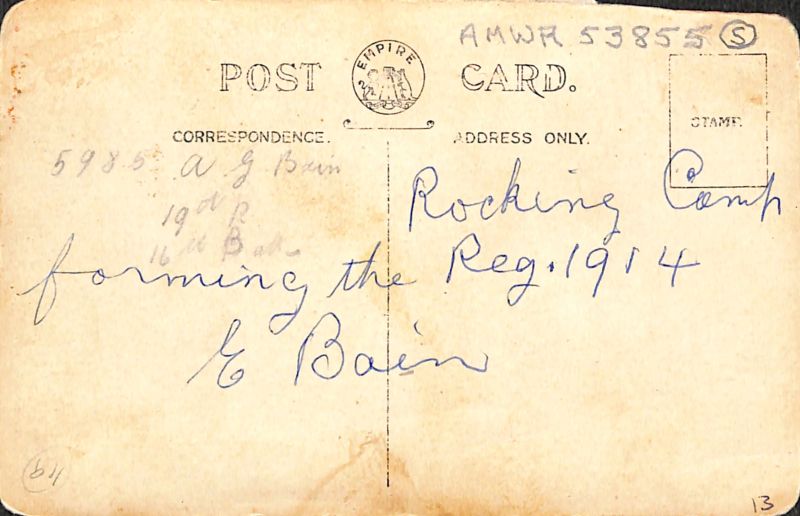 AMWR 53855 S
EMPIRE
POST CARD.
CORRESPONDENCE.
ADDRESS ONLY.
STAMP.
5985 A G Bain
19th R
16th Batt
Rocking Camp
forming the Reg. 1914
E Bain
64
13